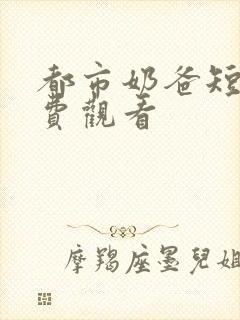 都市奶爸短
費觀看
摩羯座墨兒姐